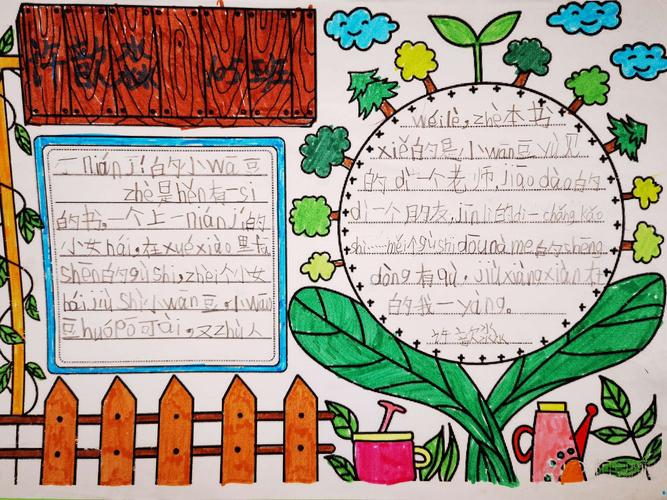 105班
一nián jí的小wān豆
zhè是hěn有一si
的书。一个上一nián jí的
小女hái,在xué xiào里发
shēn的gù shi,zhèi个小女
hái jiù shì小wān豆。小wān
豆huó pō可ài,又zhù人
wéi lè,zhè本书
xiě的是小wān豆yù见
的dì一个老师,jiāo dào的
dì一个朋友,jīn lì的dì一chǎng kǎo
shì……méi个gù shi dōu nà me的shēng
dòng有qù。jiù xiàng xiàn在
的我一yàng。
许歆